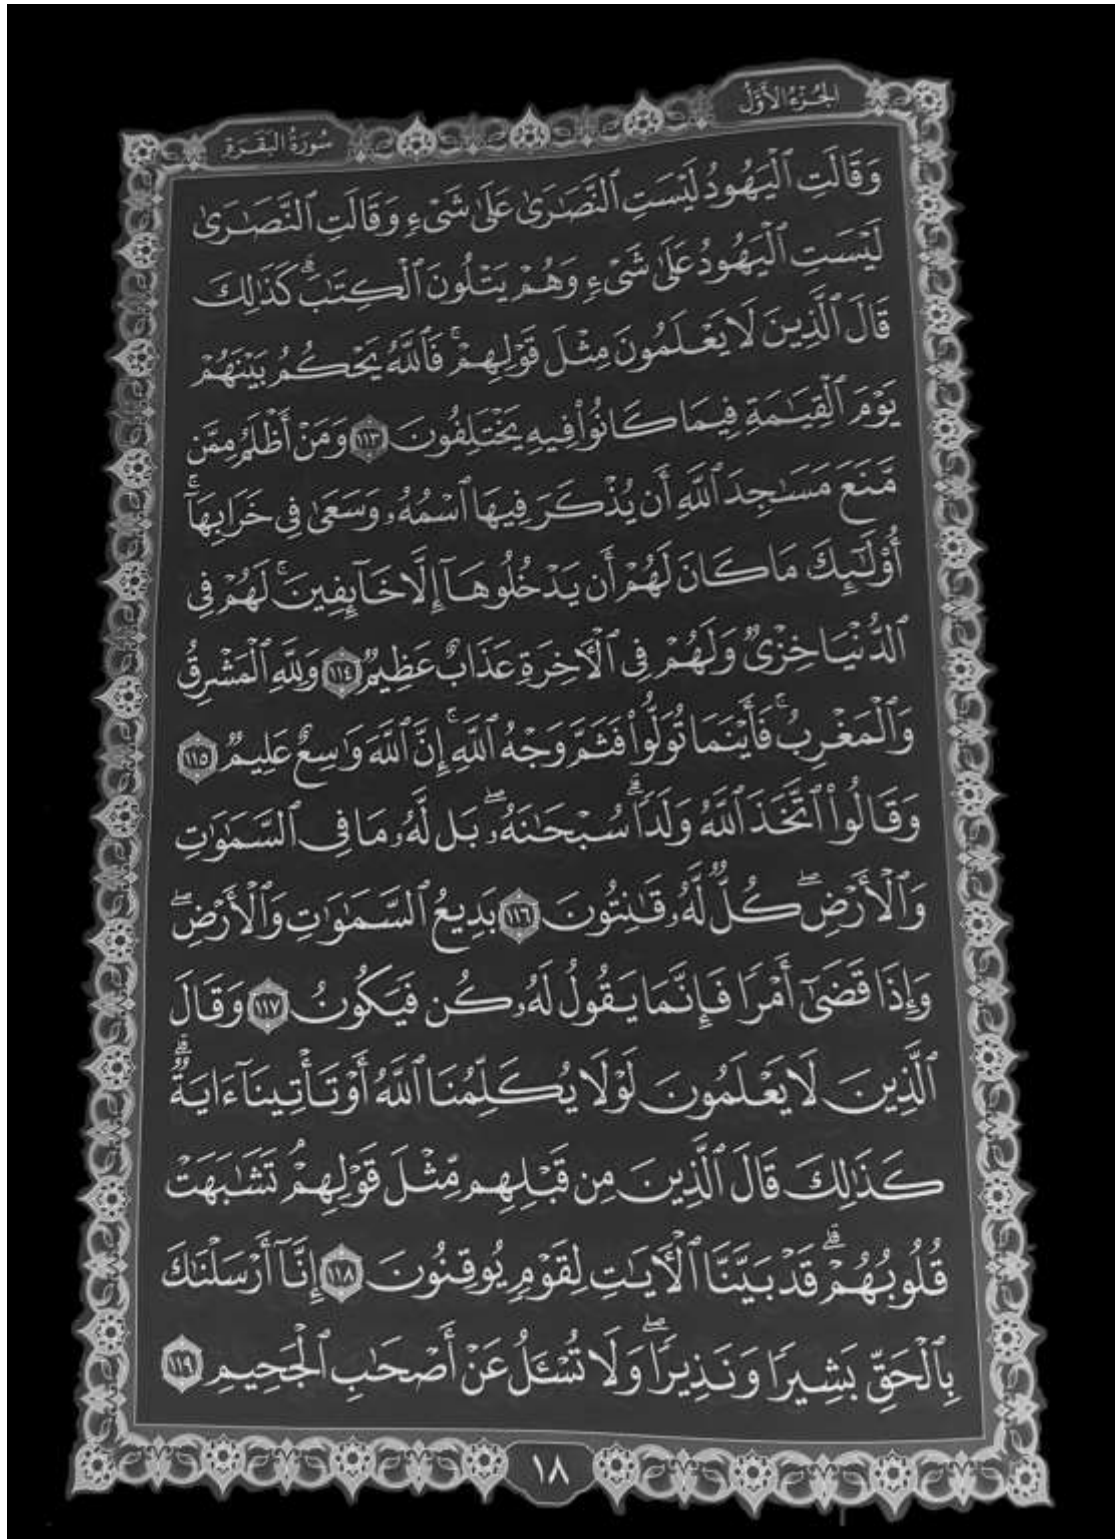 الجُزْءُ الأَوَّلُ
سُورَةُ البَقَرَةِ
وَقَالَتِ ٱلْيَهُودُ لَيْسَتِ ٱلنَّصَٰرَىٰ عَلَىٰ شَىْءٍ وَقَالَتِ ٱلنَّصَٰرَىٰ
لَيْسَتِ ٱلْيَهُودُ عَلَىٰ شَىْءٍ وَهُمْ يَتْلُونَ ٱلْكِتَٰبَۗ كَذَٰلِكَ
قَالَ ٱلَّذِينَ لَا يَعْلَمُونَ مِثْلَ قَوْلِهِمْۚ فَٱللَّهُ يَحْكُمُ بَيْنَهُمْ
يَوْمَ ٱلْقِيَٰمَةِ فِيمَا كَانُوا۟ فِيهِ يَخْتَلِفُونَ ١١٣ وَمَنْ أَظْلَمُ مِمَّن
مَّنَعَ مَسَٰجِدَ ٱللَّهِ أَن يُذْكَرَ فِيهَا ٱسْمُهُۥ وَسَعَىٰ فِى خَرَابِهَآۚ
أُو۟لَٰٓئِكَ مَا كَانَ لَهُمْ أَن يَدْخُلُوهَآ إِلَّا خَآئِفِينَۚ لَهُمْ فِى
ٱلدُّنْيَا خِزْىٌ وَلَهُمْ فِى ٱلْءَاخِرَةِ عَذَابٌ عَظِيمٌ ١١٤ وَلِلَّهِ ٱلْمَشْرِقُ
وَٱلْمَغْرِبُۚ فَأَيْنَمَا تُوَلُّوا۟ فَثَمَّ وَجْهُ ٱللَّهِۚ إِنَّ ٱللَّهَ وَٰسِعٌ عَلِيمٌ ١١٥
وَقَالُوا۟ ٱتَّخَذَ ٱللَّهُ وَلَدًاۗ سُبْحَٰنَهُۥۖ بَل لَّهُۥ مَا فِى ٱلسَّمَٰوَٰتِ
وَٱلْأَرْضِۖ كُلٌّ لَّهُۥ قَٰنِتُونَ ١١٦ بَدِيعُ ٱلسَّمَٰوَٰتِ وَٱلْأَرْضِۖ
وَإِذَا قَضَىٰٓ أَمْرًا فَإِنَّمَا يَقُولُ لَهُۥ كُن فَيَكُونُ ١١٧ وَقَالَ
ٱلَّذِينَ لَا يَعْلَمُونَ لَوْلَا يُكَلِّمُنَا ٱللَّهُ أَوْ تَأْتِينَآ ءَايَةٌۗ
كَذَٰلِكَ قَالَ ٱلَّذِينَ مِن قَبْلِهِم مِّثْلَ قَوْلِهِمْۘ تَشَٰبَهَتْ
قُلُوبُهُمْۗ قَدْ بَيَّنَّا ٱلْءَايَٰتِ لِقَوْمٍ يُوقِنُونَ ١١٨ إِنَّآ أَرْسَلْنَٰكَ
بِٱلْحَقِّ بَشِيرًا وَنَذِيرًاۖ وَلَا تُسْـَٔلُ عَنْ أَصْحَٰبِ ٱلْجَحِيمِ ١١٩
١٨